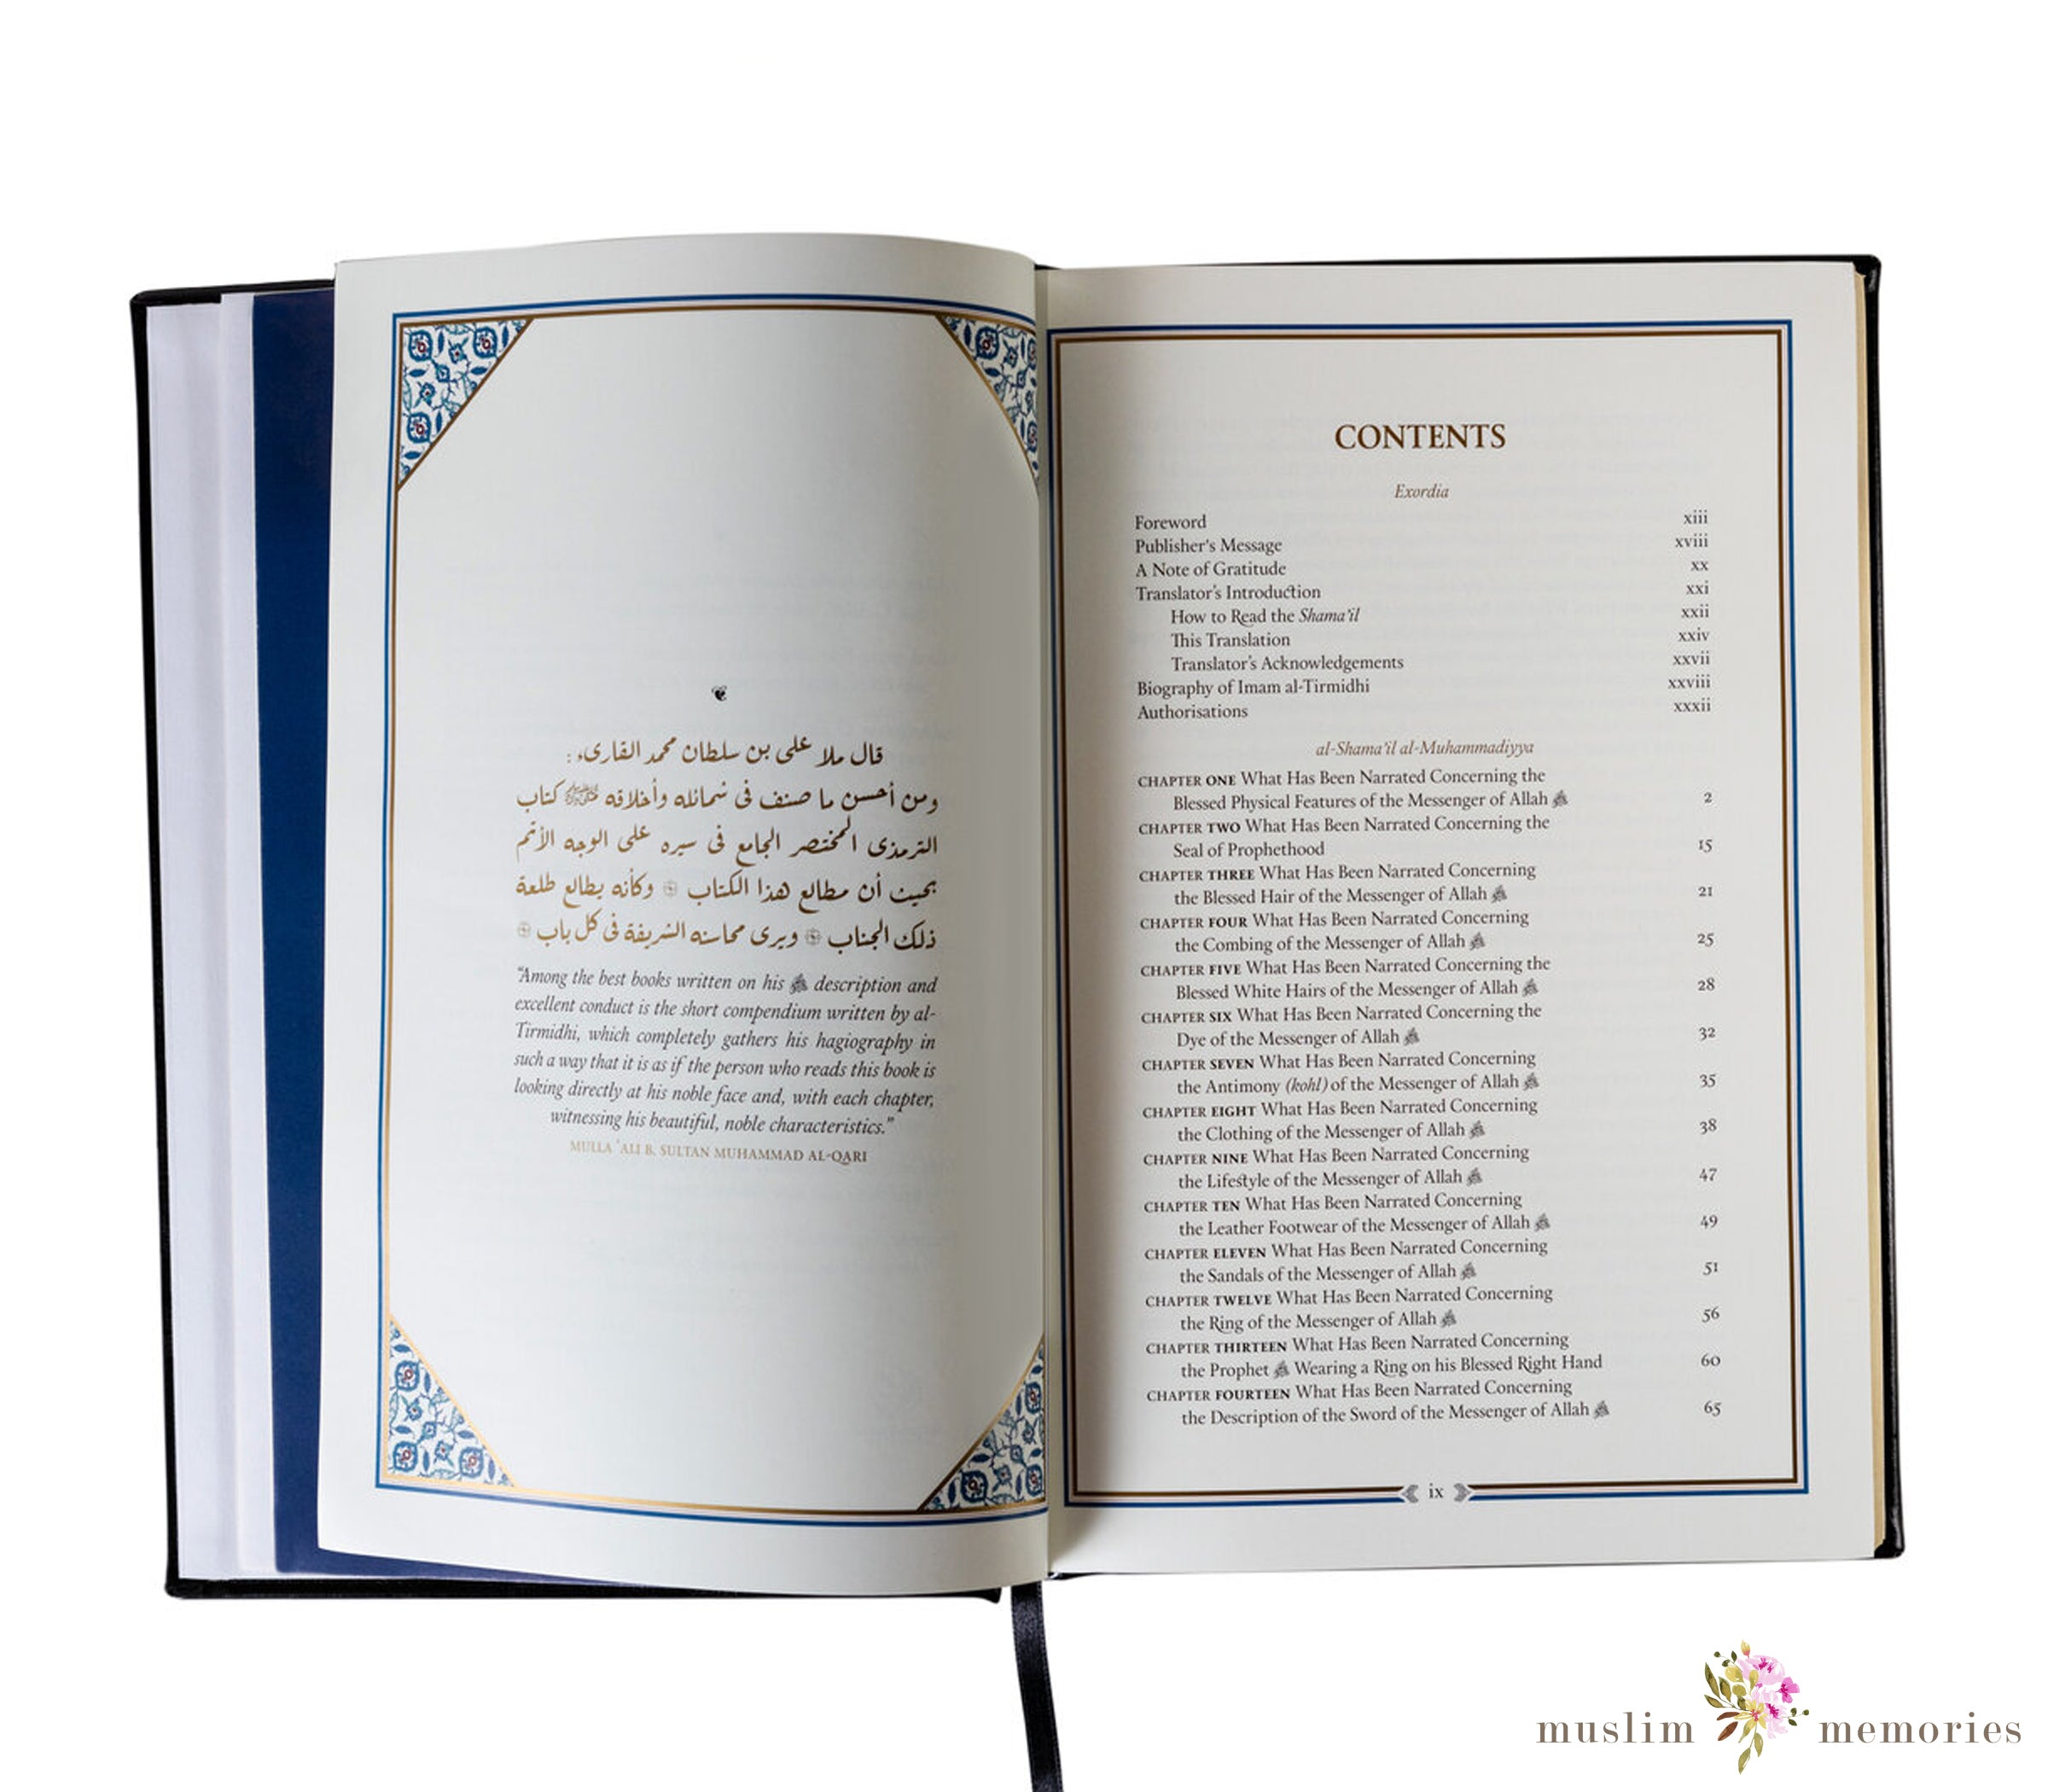 قال ملا على بن سلطان محمد القارىء:
ومن أحسن ما صنف فى شمائله وأخلاقه ﷺ كتاب
الترمذى المختصر الجامع فى سيره على الوجه الأتم
بحيث أن مطالع هذا الكتاب ۞ وكأنه يطالع طلعة
ذلك الجناب ۞ ويرى محاسنه الشريفة فى كل باب ۞
“Among the best books written on his ﷺ description and
excellent conduct is the short compendium written by al-
Tirmidhi, which completely gathers his hagiography in
such a way that it is as if the person who reads this book is
looking directly at his noble face and, with each chapter,
witnessing his beautiful, noble characteristics.”
MULLA ʿALI B. SULTAN MUHAMMAD AL-QARI
CONTENTS
Exordia
Foreword xiii
Publisher's Message xviii
A Note of Gratitude xx
Translator's Introduction xxi
How to Read the Shama'il xxii
This Translation xxiv
Translator's Acknowledgements xxvii
Biography of Imam al-Tirmidhi xxviii
Authorisations xxxii
al-Shama'il al-Muhammadiyya
CHAPTER ONE What Has Been Narrated Concerning the
Blessed Physical Features of the Messenger of Allah ﷺ 2
CHAPTER TWO What Has Been Narrated Concerning the
Seal of Prophethood 15
CHAPTER THREE What Has Been Narrated Concerning
the Blessed Hair of the Messenger of Allah ﷺ 21
CHAPTER FOUR What Has Been Narrated Concerning
the Combing of the Messenger of Allah ﷺ 25
CHAPTER FIVE What Has Been Narrated Concerning the
Blessed White Hairs of the Messenger of Allah ﷺ 28
CHAPTER SIX What Has Been Narrated Concerning the
Dye of the Messenger of Allah ﷺ 32
CHAPTER SEVEN What Has Been Narrated Concerning
the Antimony (kohl) of the Messenger of Allah ﷺ 35
CHAPTER EIGHT What Has Been Narrated Concerning
the Clothing of the Messenger of Allah ﷺ 38
CHAPTER NINE What Has Been Narrated Concerning
the Lifestyle of the Messenger of Allah ﷺ 47
CHAPTER TEN What Has Been Narrated Concerning
the Leather Footwear of the Messenger of Allah ﷺ 49
CHAPTER ELEVEN What Has Been Narrated Concerning
the Sandals of the Messenger of Allah ﷺ 51
CHAPTER TWELVE What Has Been Narrated Concerning
the Ring of the Messenger of Allah ﷺ 56
CHAPTER THIRTEEN What Has Been Narrated Concerning
the Prophet ﷺ Wearing a Ring on his Blessed Right Hand 60
CHAPTER FOURTEEN What Has Been Narrated Concerning
the Description of the Sword of the Messenger of Allah ﷺ 65
ix
muslim memories